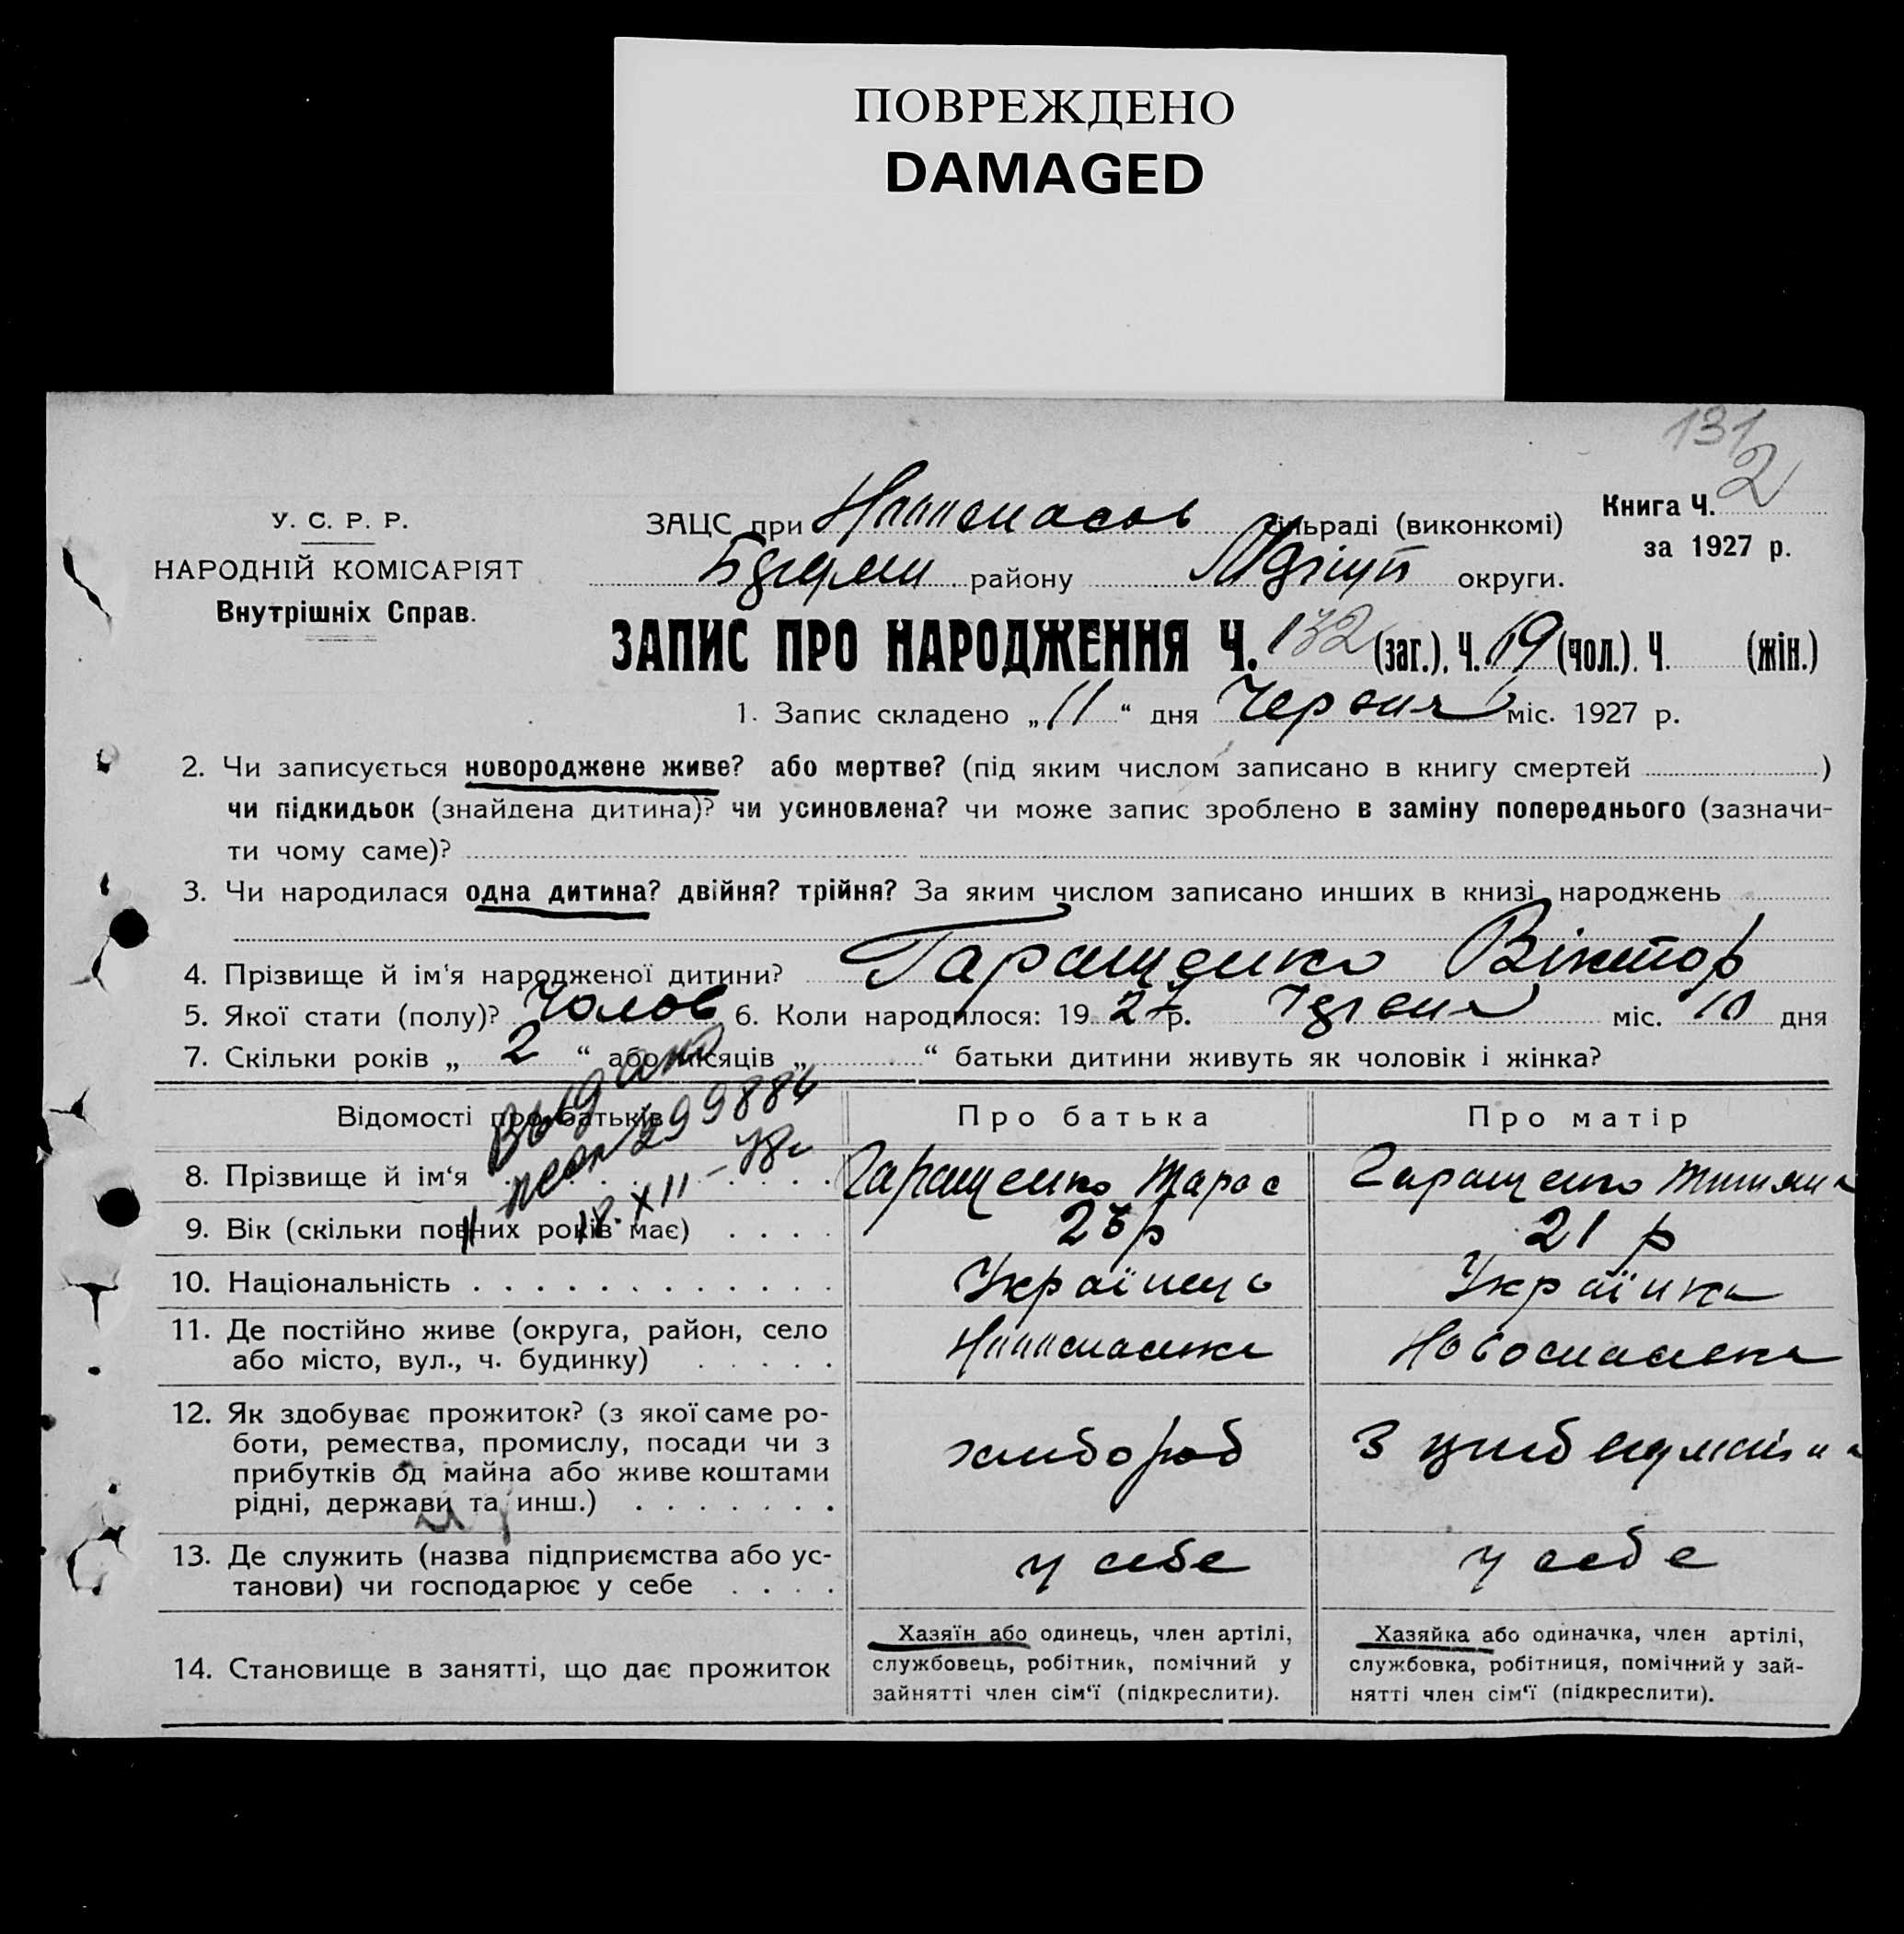 ПОВРЕЖДЕНО
DAMAGED
131
У. С. Р. Р.
НАРОДНІЙ КОМІСАРІЯТ
Внутрішніх Справ.
ЗАЦС при сільраді (виконкомі)
району округи.
Книга Ч. 2
за 1927 р.
ЗАПИС ПРО НАРОДЖЕННЯ Ч. 132 (заг.), Ч. 19 (чол.), Ч. (жін.)
1. Запис складено „11“ дня Червня міс. 1927 р.
2. Чи записується новороджене живе? або мертве? (під яким числом записано в книгу смертей )
чи підкидьок (знайдена дитина)? чи усиновлена? чи може запис зроблено в заміну попереднього (зазначи-
ти чому саме)?
3. Чи народилася одна дитина? двійня? трійня? За яким числом записано инших в книзі народжень
4. Прізвище й ім‘я народженої дитини? Гаращенко Віктор
5. Якої стати (полу)? Чолов 6. Коли народилося: 1927 р. Червня міс. 10 дня
7. Скільки років „ 2 “ або місяців „ “ батьки дитини живуть як чоловік і жінка?
Выдано
299884
18.XII
Відомості про батьків Про батька Про матір
8. Прізвище й ім‘я Гаращенко Тарас Гаращенко
9. Вік (скільки повних років має) 23 р 21 р
10. Національність Українець Українка
11. Де постійно живе (округа, район, село
або місто, вул., ч. будинку) Новоспаська
12. Як здобуває прожиток? (з якої саме ро-
боти, ремества, промислу, посади чи з
прибутків од майна або живе коштами
рідні, держави та инш.) хлібороб
13. Де служить (назва підприємства або ус-
танови) чи господарює у себе у себе у себе
14. Становище в занятті, що дає прожиток
Хазяїн або одинець, член артілі,
службовець, робітник, помічний у
зайнятті член сім‘ї (підкреслити).
Хазяйка або одиначка, член артілі,
службовка, робітниця, помічний у зай-
нятті член сім‘ї (підкреслити).